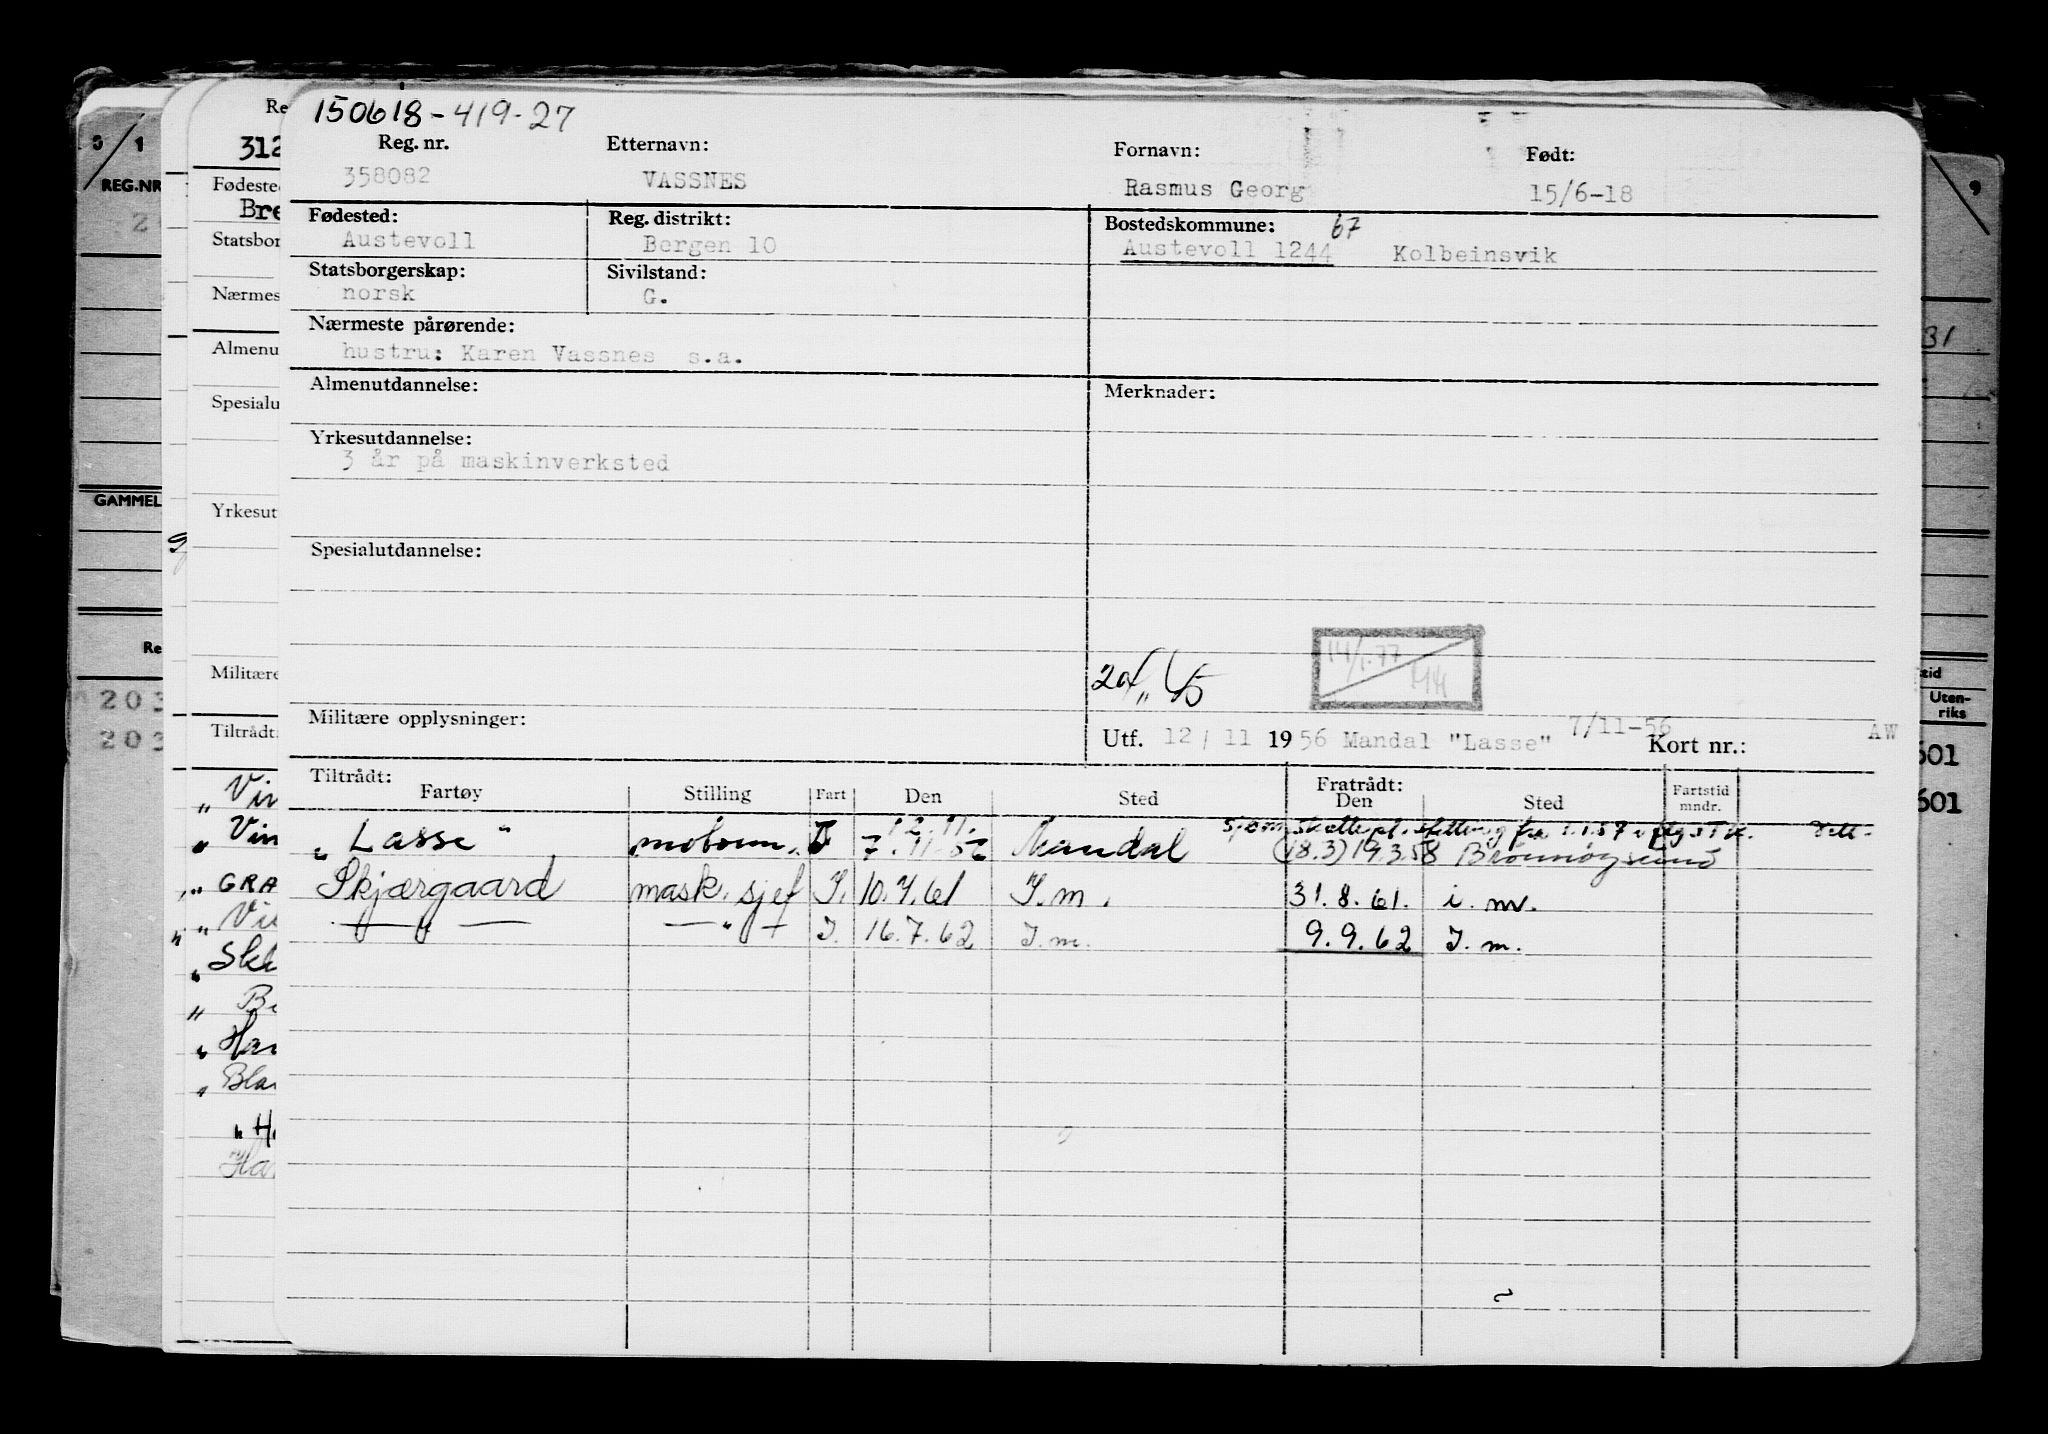 150618-419-27
Reg. nr. Etternavn: Fornavn: Født:
358082 VASSNES Rasmus Georg 15/6-18
Fødested: Reg. distrikt: Bostedskommune: 67
Austevoll Bergen 10 Austevoll 1244 Kolbeinsvik
Statsborgerskap: Sivilstand:
norsk G.
Nærmeste pårørende:
hustru: Karen Vassnes s.a.
Almenutdannelse: Merknader:
Yrkesutdannelse:
3 år på maskinverksted
Spesialutdannelse:
14/1.77
Militære opplysninger:
Utf. 12/11 1956 Mandal "Lasse" 7/11-56 Kort nr.: AW
Tiltrådt: Fratrådt:
Fartøy Stilling Fart Den Sted Den Sted Fartstid mndr.
12.11.
fra 1.1.57
"Lasse" Mandal (18.3) 19.3.58 Brønnøysund
Skjærgaard mask. sjef I. 10.7.61 I. m. 31.8.61. i. m.
— " — — " — I. 16.7.62 I. m. 9.9.62 I. m.
REG.NR
GAMMEL
Re
203
203
Re
312
Fødested
Bre
Statsbor
Nærmes
Almenu
Spesialu
Yrkesut
Militære
Tiltrådt:
" Vin
" Vin
" GRA
" Vin
" Bl
" Han
" Blan
" H.
Han
31
eid
Uten-
riks
601
601